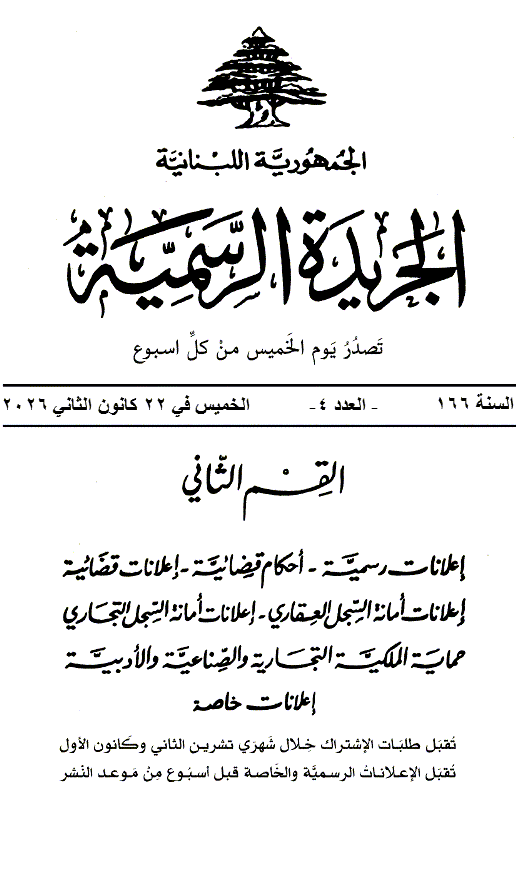 الجمهوريَّة اللبنانيَّة
الجريدة الرسميَّة
تَصدُرُ يَوم الخَميس منْ كلِّ اسبوع
السنة ١٦٦ - العدد ٤- الخميس في ٢٢ كانون الثاني ٢٠٢٦
القِسْم الثّاني
إعلانات رسميَّة - أحكام قضائيَّة - إعلانات قضائية
إعلانات أمانة السّجل العقاري - إعلانات أمانة السّجل التجاري
حماية الملكيَّة التجارية والصّناعيَّة والأدبيَّة
إعلانات خاصة
تُقبَل طلبَات الإشتراك خِلال شَهرَي تشرين الثاني وكَانون الأول
تُقبَل الإعلانات الرسميَّة والخَاصة قبل أسبُوع مِنْ مَوعد النَشر